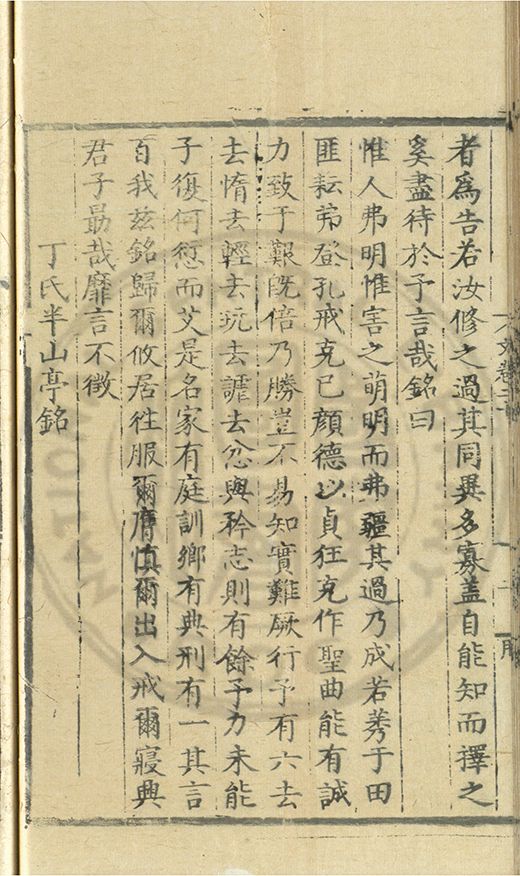 者爲告若汝修之過其同異多寡盖自能知而擇之
奚盡待於予言哉銘曰
惟人弗明惟害之萌明而弗疆其過乃成若莠于田
匪耘弗登孔戒克已顔德以貞狂克作聖曲能有誠
力致于艱旣倍乃勝豈不易知實難厥行予有六去
去惰去輕去玩去謔去忿與矜志則有餘予力未能
子復何愆而艾是名家有庭訓鄉有典刑有一其言
百我兹銘歸爾攸居徃服爾膺慎爾出入戒爾寢興
君子勗哉靡言不徵
丁氏半山亭銘